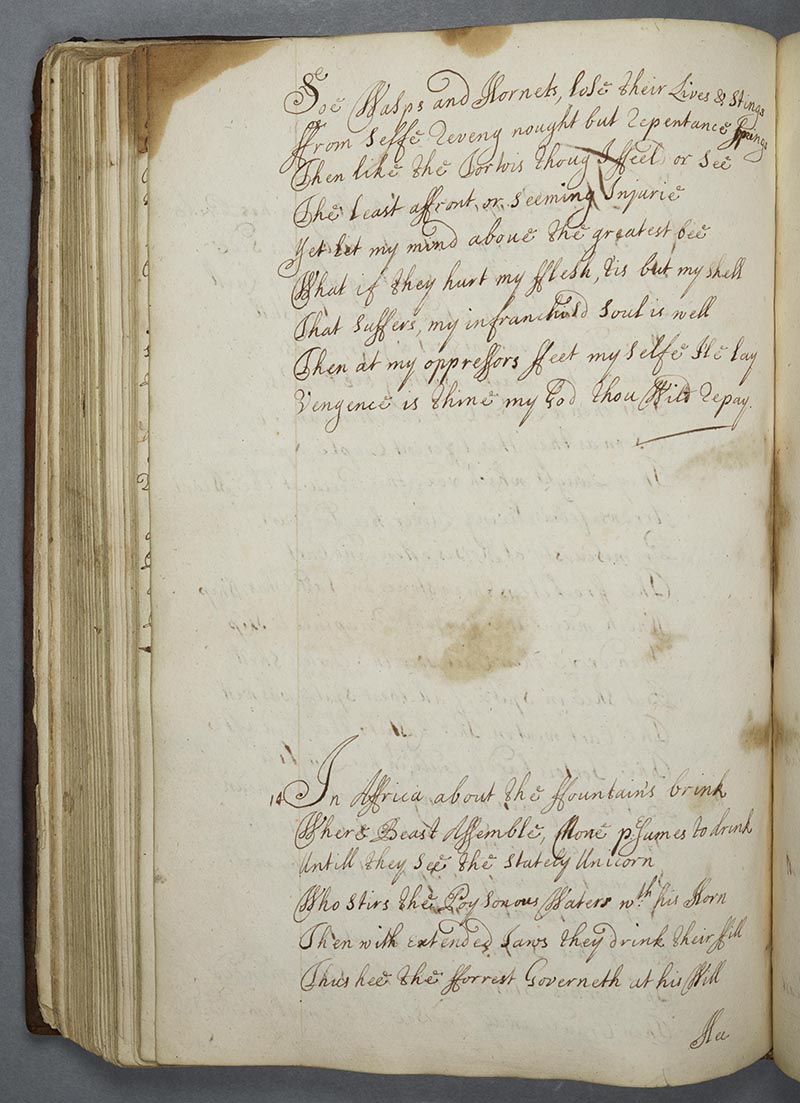 Soe Wasps and Hornets, lose their Lives & Stings
ffrom selfe Reveng nought but Repentance springs
Then like the Tortois thoug I ffeel or See
The least affront, or seeming Injurie
Yet let my mind aboue the greatest bee
What if they hurt my fflesh, tis but my shell
That suffers, my infranchisd Soul is well
Then at my oppressors ffeet my selfe Ile lay
Vengence is thine my God thou Wild repay.
14 In Affrica about the ffountains brink
Where Beast Assemble, None p'sumes to drink
Untill they See the Stately Unicorn
Who stirs the Poysonous Waters wth his Horn
Then with extended Jaws they drink their ffill
Thus hee the fforrest Governeth at his Will
Hee